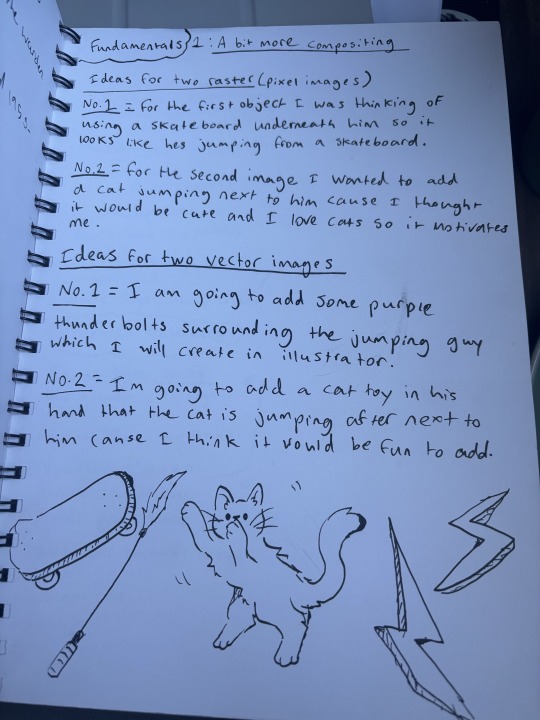 Fundamentals 1: A bit more compositing
Ideas for two raster (pixel images)
No.1 = For the first object I was thinking of
using a skateboard underneath him so it
looks like hes jumping from a skateboard.
No.2 = For the second image I wanted to add
a cat jumping next to him cause I thought
it would be cute and I love cats so it motivates
me.
Ideas for two vector images
No.1 = I am going to add some purple
thunderbolts surrounding the jumping guy
which I will create in illustrator.
No.2 = Im going to add a cat toy in his
hand that the cat is jumping after next to
him cause I think it would be fun to add.